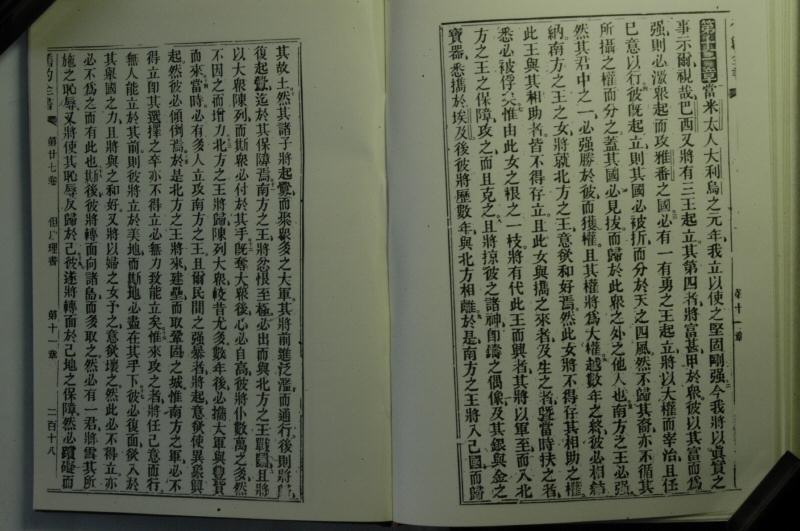 第十一章當米太人大利烏之元年我立以使之堅固剛强今我將以真實之
事示爾視哉巴西又將有三王起立其第四者將富甚甲於衆彼以其富而爲
强則必激衆起而攻雅番之國必有一有勇之王起立將以大權而宰治且任
已意以行彼旣起立則其國必被折而分於天之四風然不歸其裔亦不循其
所攝之權而分之蓋其國必見拔而歸於此衆之外之他人也南方之王必强
然其君中之一必强勝於彼而獲權且其權將爲大權越數年之終彼必相結
納南方之王之女將就北方之王意欲和好焉然此女將不得存其相助之權
此王與其相助者皆不得存立且此女與攜之來者及生之者曁當時扶之者
悉必被俘矣惟由此女之根之一枝將有代此王而興者其將以軍至而入北
方之王之保障攻之而且克之且將掠彼之諸神卽鑄之偶像及其銀與金之
寶器悉攜於埃及後彼將歷數年與北方相離於是南方之王將入己國而歸
第十一章
其故土然其諸子將起釁而聚衆多之大軍其將前進泛濫而通行後則將
復起釁迄於其保障焉南方之王將忿恨至極必出而與北方之王戰鬬且將
以大衆陳列而斯衆必付於其手旣奪大衆後心必自高彼將仆數萬之多然
不因之而增力北方之王將歸陳列大衆較昔尤多數年後必攜大軍與豐貲
而來當時必有多人立攻南方之王且爾民間之强暴者將起意欲使異象興
起然彼必傾倒焉於是北方之王將來建壘而取鞏固之城惟南方之軍必不
得立卽其選擇之卒亦不得立必無力致能立矣惟來攻之者將任己意而行
無人能立於其前則彼將立於美地而斯地必盡在其手下彼必復面欲入於
其舉國之力且將與之和好又將以婦之女子之意欲壞之然此必不得立亦
必不爲之而有此也斯後彼將轉面向諸島而多取之然必有一君將雪其所
施之恥辱又將使其恥辱反歸於己彼遂將轉面於己地之保障然必躓礙而
舊約全書 第廿七卷 但以理書 第十一章 二百十八